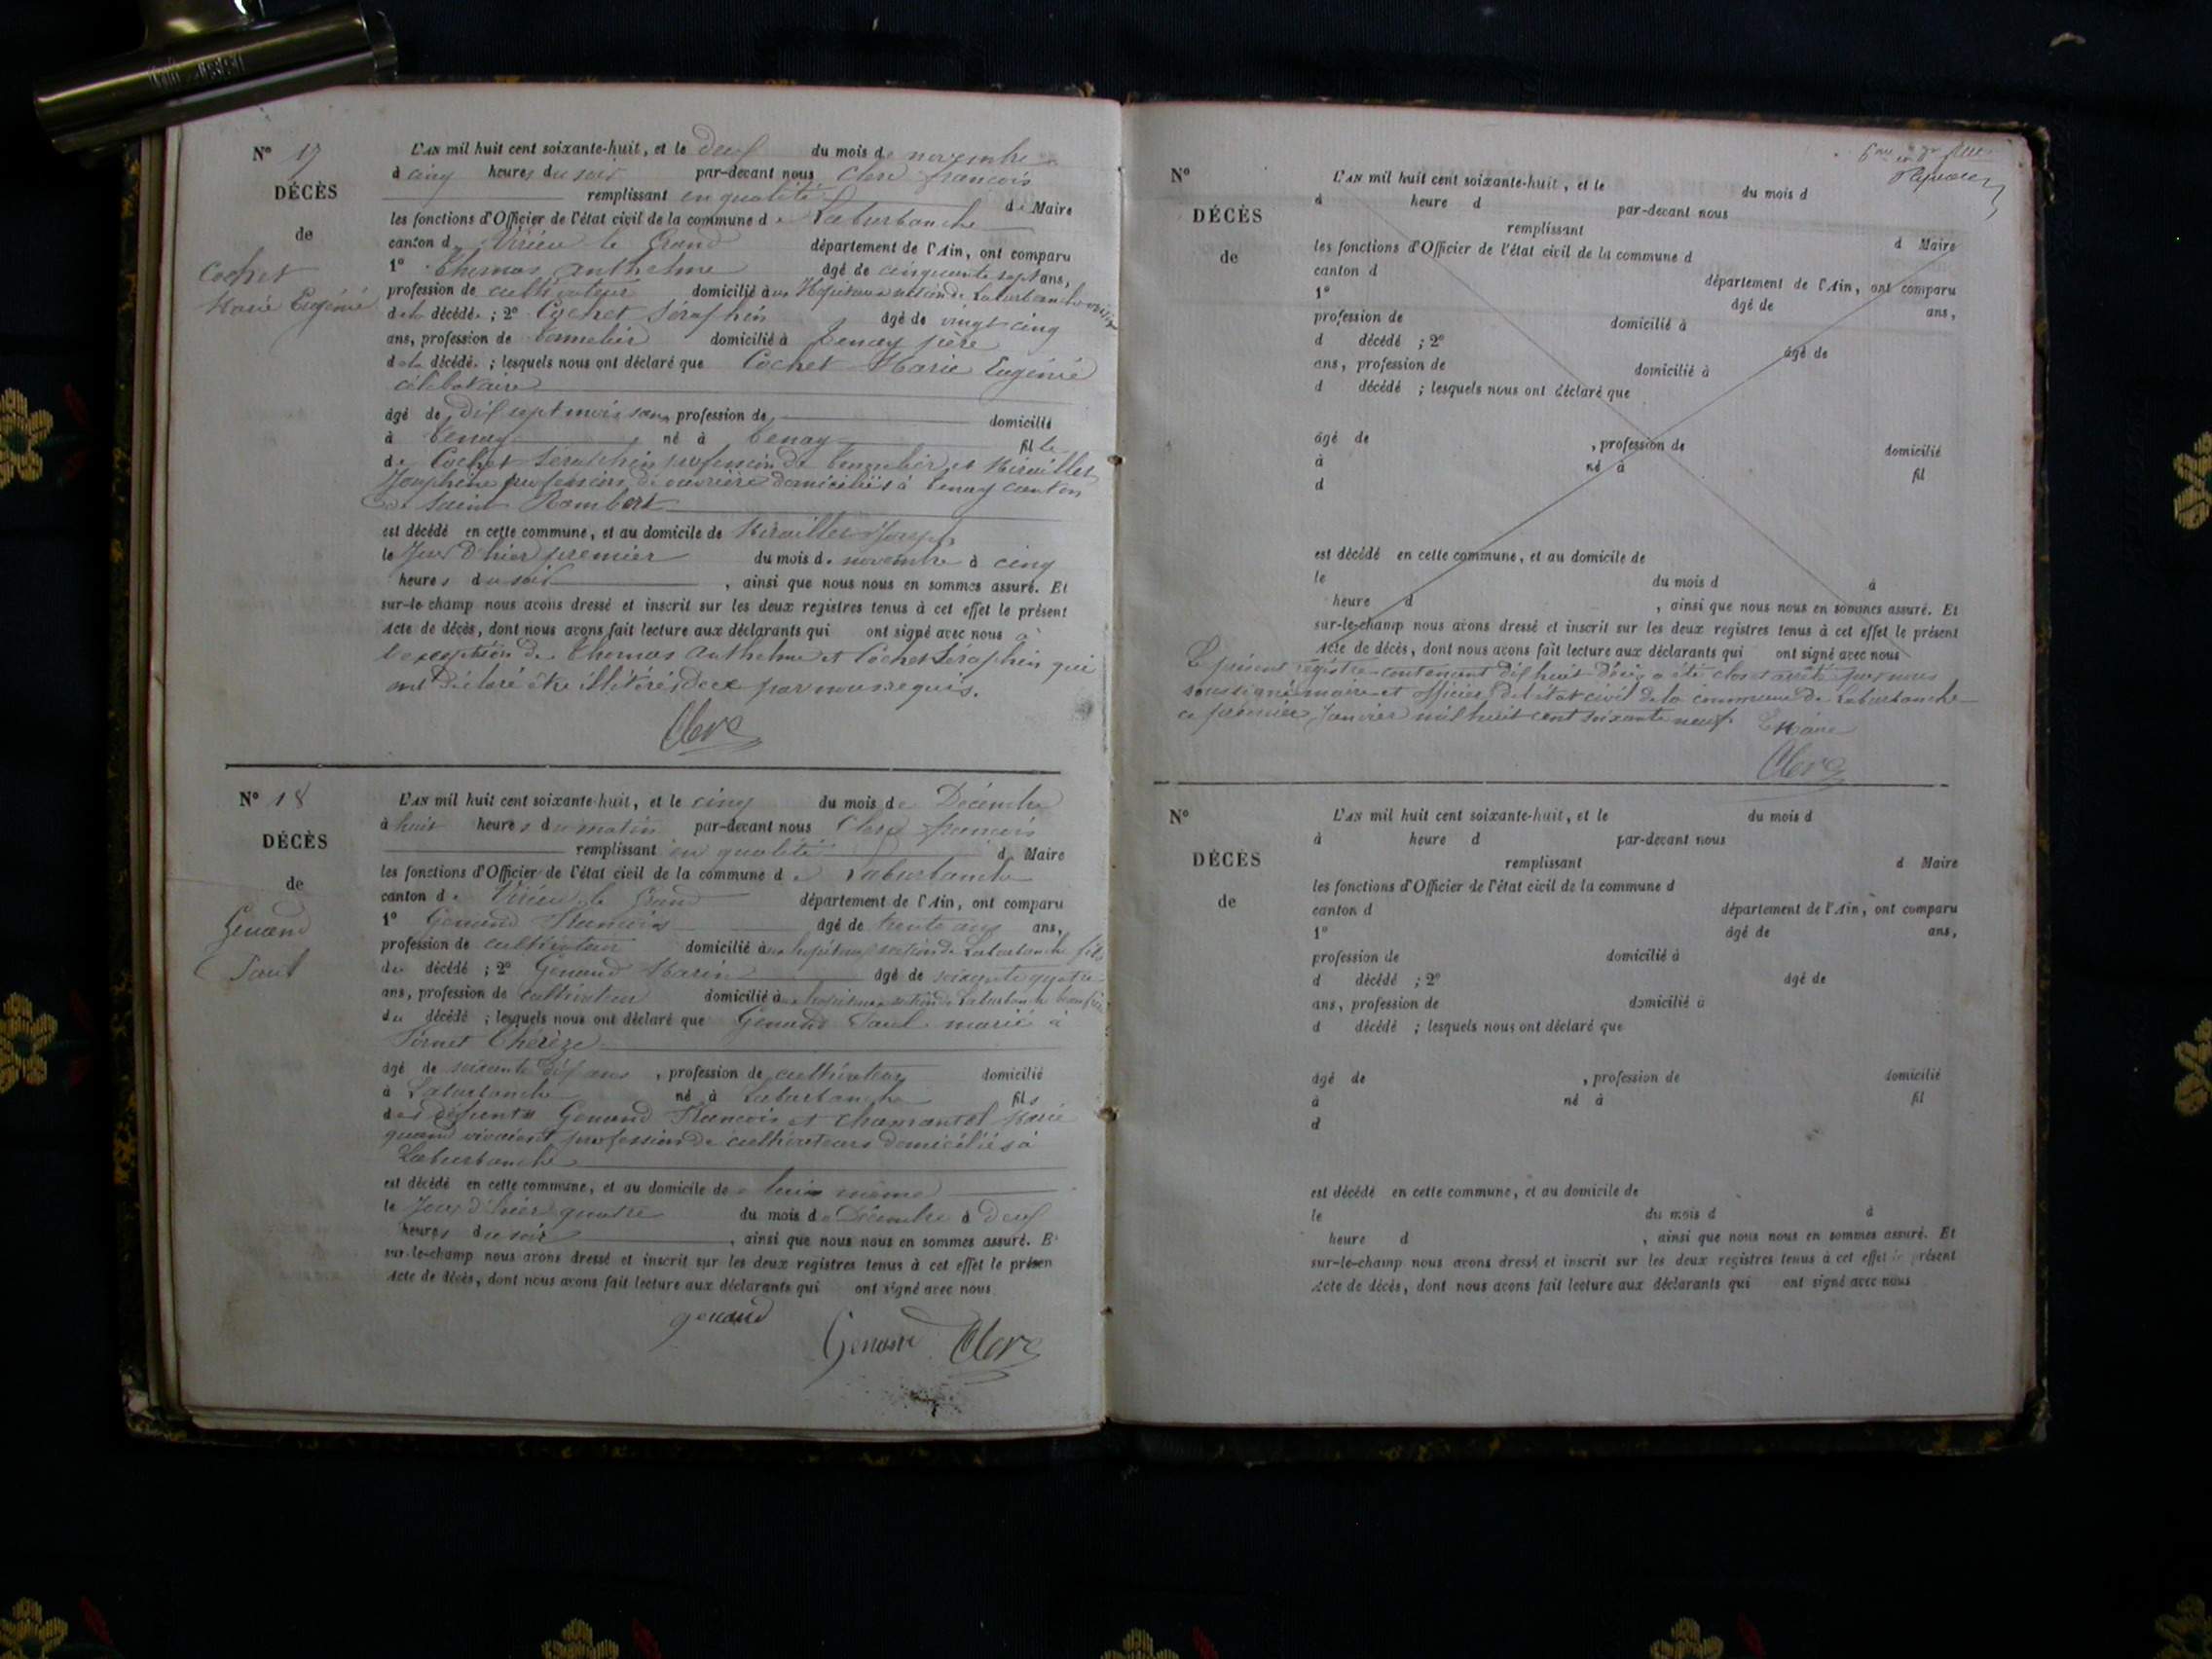 N° 17
DÉCÈS
de
Cochet
Marie Eugénie
L'AN mil huit cent soixante-huit, et le deux du mois de novembre
à cinq heures du soir par-devant nous Clerc françois
remplissant en qualité de Maire
les fonctions d'Officier de l'état civil de la commune de Laburbanche
canton de Virieu le Grand département de l'Ain, ont comparu
1° Thomas Anthelme âgé de cinquante sept ans,
profession de cultivateur domicilié aux Hopitaux section de Laburbanche voisin
de la décédée ; 2° Cochet Séraphin âgé de vingt cinq
ans, profession de domicilié à Tenay père
de la décédée ; lesquels nous ont déclaré que Cochet Marie Eugénie
célibataire
âgé de dix sept mois sans profession de domicilié
à Tenay né à Tenay fille
de Cochet Séraphin profession de et
Josephine profession de ouvrière domiciliés à Tenay canton
de Saint Rambert
est décédé en cette commune, et au domicile de Joseph
le Jour d'hier premier du mois de novembre à cinq
heures du soir , ainsi que nous nous en sommes assuré. Et
sur-le-champ nous avons dressé et inscrit sur les deux registres tenus à cet effet le présent
Acte de décès, dont nous avons fait lecture aux déclarants qui ont signé avec nous à
l'exception de Thomas Anthelme et Cochet Séraphin qui
ont déclaré être illitérés de ce par nous requis.
Clerc
N° 18
DÉCÈS
de
Genand
Paul
L'AN mil huit cent soixante-huit, et le cinq du mois de Décembre
à huit heures du matin par-devant nous Clerc françois
remplissant en qualité de Maire
les fonctions d'Officier de l'état civil de la commune de Laburbanche
canton de Virieu le Grand département de l'Ain, ont comparu
1° Genand François âgé de trente ans ans,
profession de cultivateur domicilié aux hopitaux section de Laburbanche fils
du décédé ; 2° Genand Marin âgé de soixante quatre
ans, profession de cultivateur domicilié aux hopitaux section de Laburbanche beau frère
du décédé ; lesquels nous ont déclaré que Genand Paul marié à
Thérèze
âgé de soixante dix ans , profession de cultivateur domicilié
à Laburbanche né à Laburbanche fils
des défunts Genand François et Marie
quand vivaient profession de cultivateurs domiciliés à
Laburbanche
est décédé en cette commune, et au domicile de lui même
le Jour d'hier quatre du mois de Décembre à deux
heures du soir , ainsi que nous nous en sommes assuré. Et
sur-le-champ nous avons dressé et inscrit sur les deux registres tenus à cet effet le présen
Acte de décès, dont nous avons fait lecture aux déclarants qui ont signé avec nous
genand
Genand Clerc
N°
DÉCÈS
de
L'AN mil huit cent soixante-huit, et le du mois d
à heure d par-devant nous
remplissant d Maire
les fonctions d'Officier de l'état civil de la commune d
canton d département de l'Ain, ont comparu
1° âgé de ans,
profession de domicilié à
d décédé ; 2° âgé de
ans, profession de domicilié à
d décédé ; lesquels nous ont déclaré que
âgé de , profession de domicilié
à né à fil
d
est décédé en cette commune, et au domicile de
le du mois d à
heure d , ainsi que nous nous en sommes assuré. Et
sur-le-champ nous avons dressé et inscrit sur les deux registres tenus à cet effet le présent
Acte de décès, dont nous avons fait lecture aux déclarants qui ont signé avec nous
Le présent régistre contenant dix huit décès a été clos et arrêté par nous
soussigné maire et officier de l'état civil de la commune de Laburbanche
ce premier Janvier mil huit cent soixante neuf. Le Maire
Clerc
N°
DÉCÈS
de
L'AN mil huit cent soixante-huit, et le du mois d
à heure d par-devant nous
remplissant d Maire
les fonctions d'Officier de l'état civil de la commune d
canton d département de l'Ain, ont comparu
1° âgé de ans,
profession de domicilié à
d décédé ; 2° âgé de
ans, profession de domicilié à
d décédé ; lesquels nous ont déclaré que
âgé de , profession de domicilié
à né à fil
d
est décédé en cette commune, et au domicile de
le du mois d à
heure d , ainsi que nous nous en sommes assuré. Et
sur-le-champ nous avons dressé et inscrit sur les deux registres tenus à cet effet le présent
Acte de décès, dont nous avons fait lecture aux déclarants qui ont signé avec nous